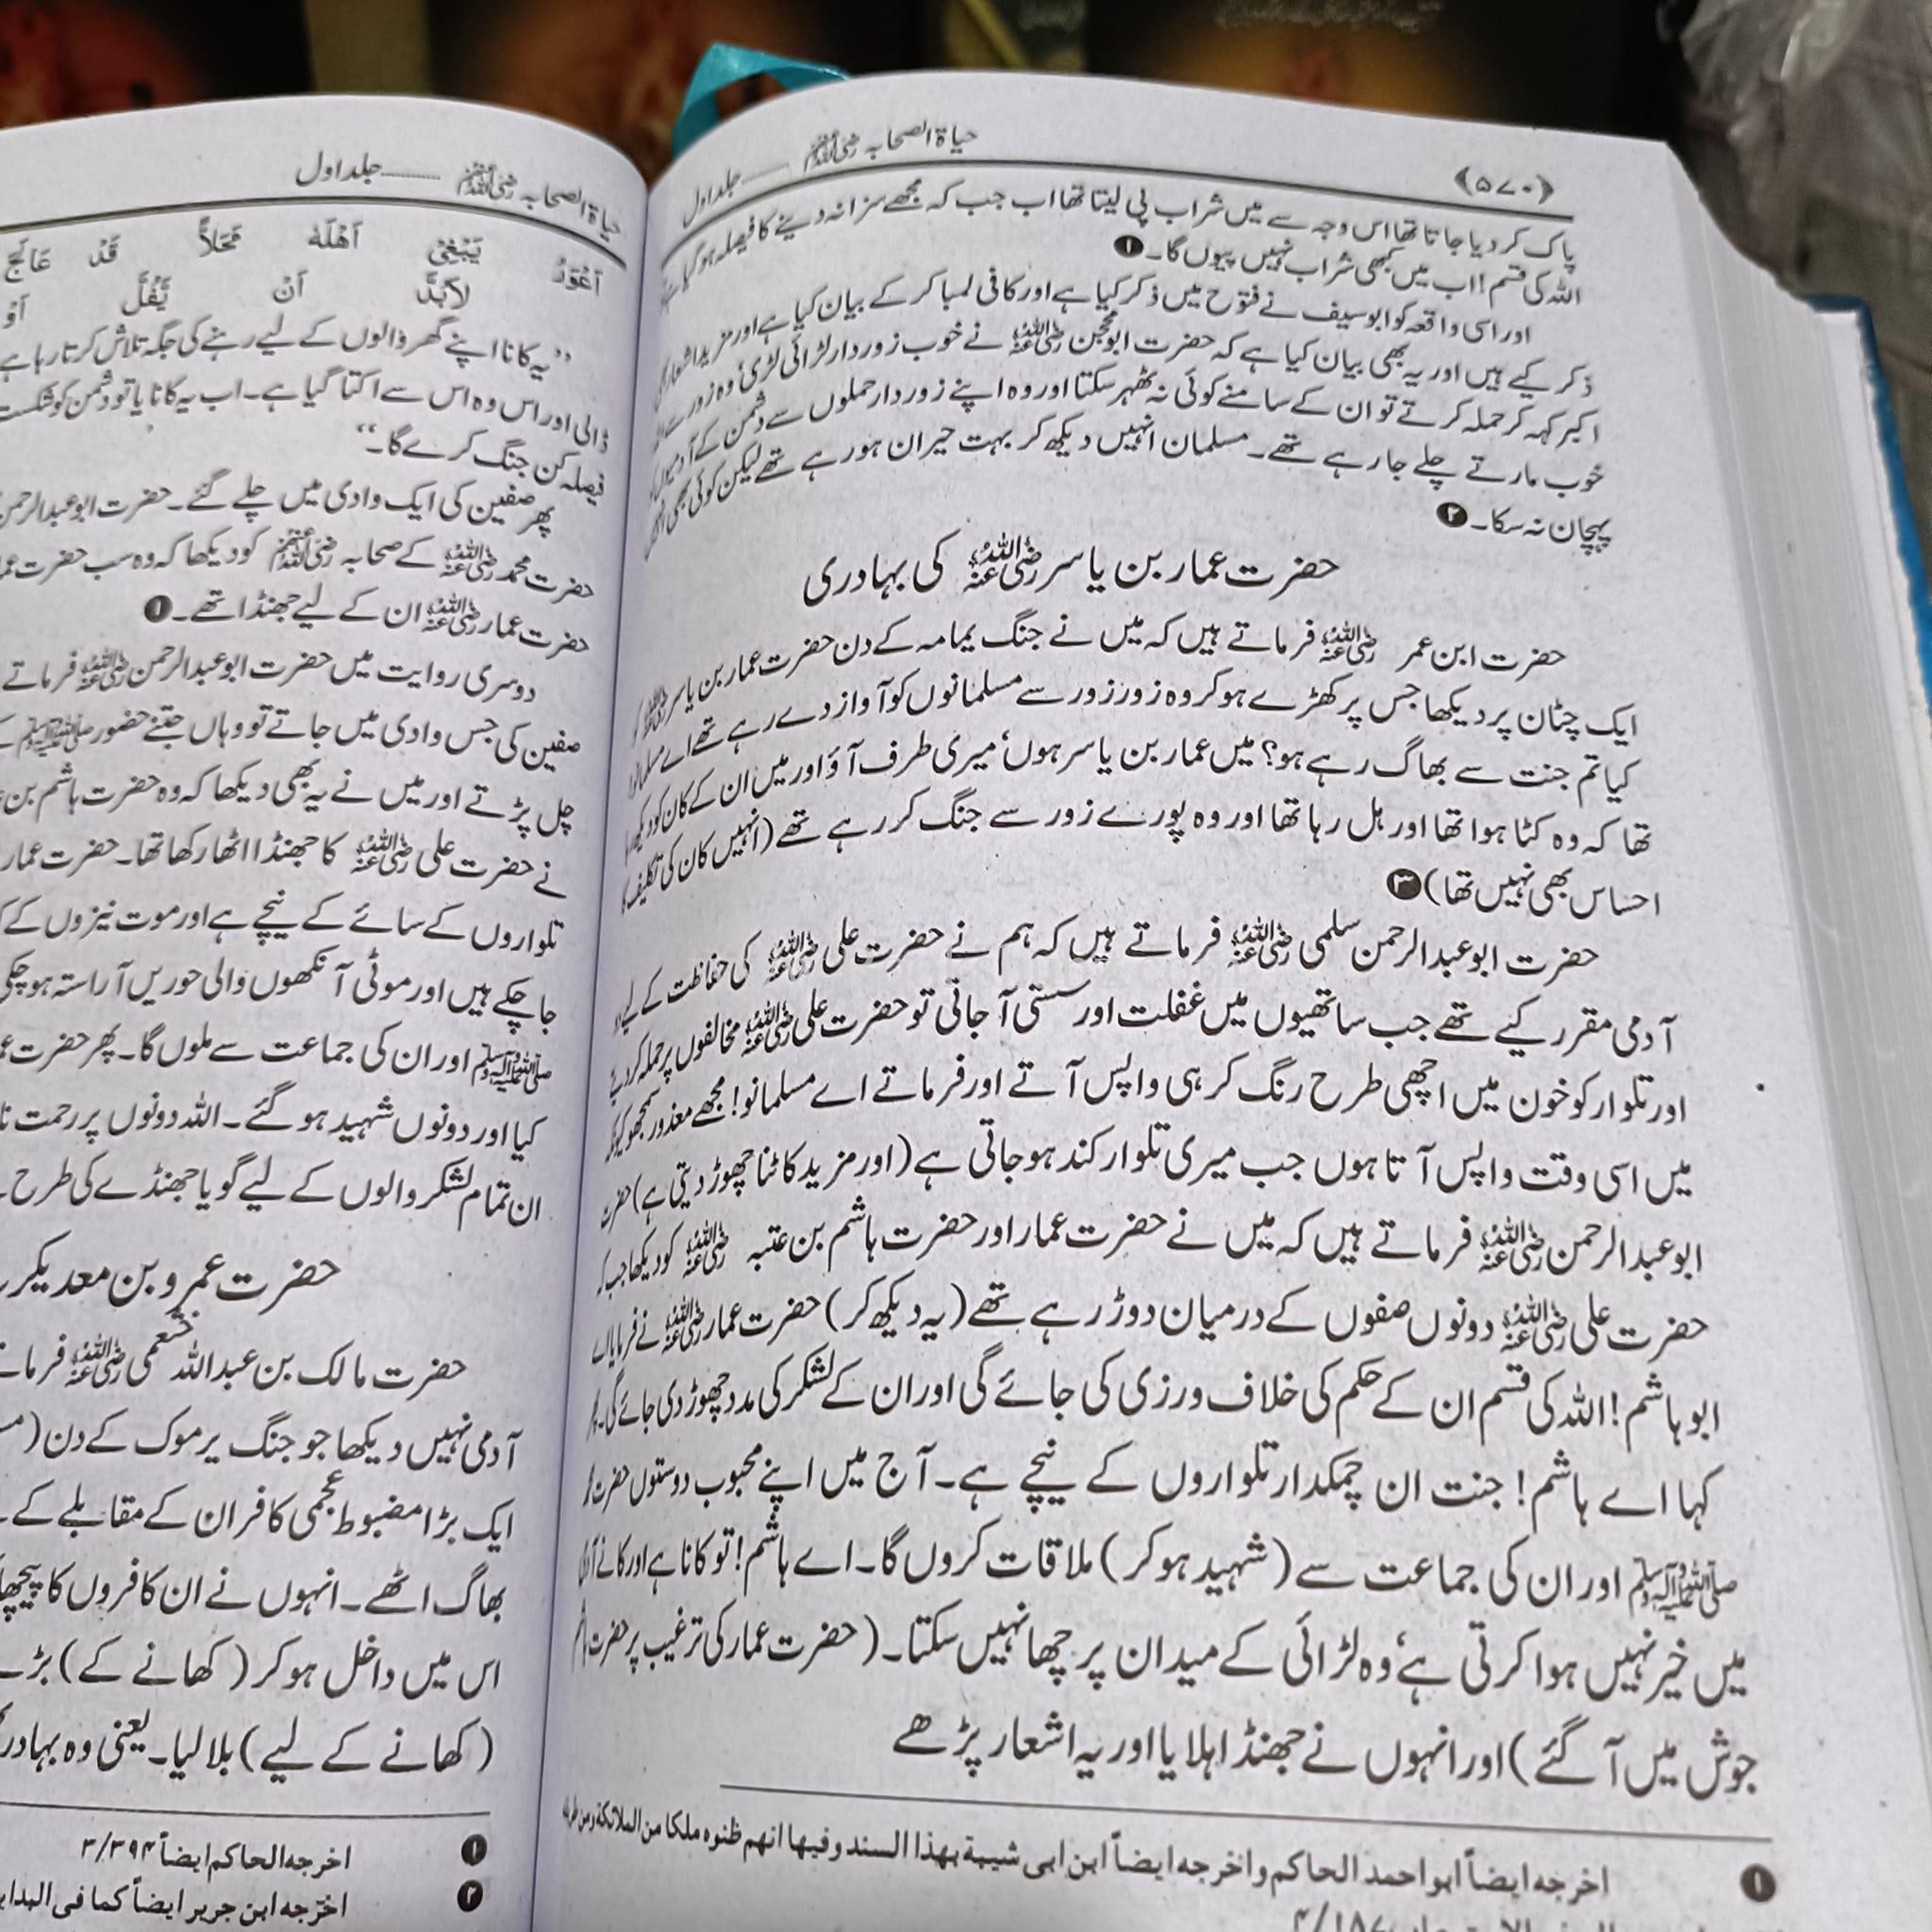 ﴿۵۷۰﴾ حیاۃ الصحابہ رضی اللہ عنہم ............ جلد اول
پاک کر دیا جاتا تھا اس وجہ سے میں شراب پی لیتا تھا اب جب کہ مجھے سزا نہ دینے کا فیصلہ ہو گیا ہے
اللہ کی قسم! اب میں کبھی شراب نہیں پیوں گا۔ ❶
اور اسی واقعہ کو ابو سیف نے فتوح میں ذکر کیا ہے اور کافی لمبا کر کے بیان کیا ہے اور مزید اشعار
ذکر کیے ہیں اور یہ بھی بیان کیا ہے کہ حضرت ابو محجن رضی اللہ عنہ نے خوب زور دار لڑائی لڑی وہ زور سے
اکبر کہہ کر حملہ کرتے تو ان کے سامنے کوئی نہ ٹھہر سکتا اور وہ اپنے زور دار حملوں سے دشمن کے آدمیوں
خوب مارتے چلے جا رہے تھے۔ مسلمان انہیں دیکھ کر بہت حیران ہو رہے تھے لیکن کوئی بھی
پہچان نہ سکا۔ ❷
حضرت عمار بن یاسر رضی اللہ عنہ کی بہادری
حضرت ابن عمر رضی اللہ عنہ فرماتے ہیں کہ میں نے جنگ یمامہ کے دن حضرت عمار بن یاسر رضی اللہ عنہ کو
ایک چٹان پر دیکھا جس پر کھڑے ہو کر وہ زور زور سے مسلمانوں کو آواز دے رہے تھے اے
کیا تم جنت سے بھاگ رہے ہو؟ میں عمار بن یاسر ہوں، میری طرف آؤ اور میں ان کے کان کو دیکھ
تھا کہ وہ کٹا ہوا تھا اور ہل رہا تھا اور وہ پورے زور سے جنگ کر رہے تھے (انہیں کان کی تکلیف
احساس بھی نہیں تھا) ❸
حضرت ابو عبدالرحمن سلمی رضی اللہ عنہ فرماتے ہیں کہ ہم نے حضرت علی رضی اللہ عنہ کی حفاظت کے لیے دو
آدمی مقرر کیے تھے جب ساتھیوں میں غفلت اور سستی آجاتی تو حضرت علی رضی اللہ عنہ مخالفوں پر حملہ کر دیتے
اور تلوار کو خون میں اچھی طرح رنگ کر ہی واپس آتے اور فرماتے اے مسلمانو! مجھے معذور سمجھو کیونکہ
میں اسی وقت واپس آتا ہوں جب میری تلوار کند ہو جاتی ہے (اور مزید کاٹنا چھوڑ دیتی ہے) حضرت
ابو عبدالرحمن رضی اللہ عنہ فرماتے ہیں کہ میں نے حضرت عمار اور حضرت ہاشم بن عتبہ رضی اللہ عنہ کو دیکھا جب کہ
حضرت علی رضی اللہ عنہ دونوں صفوں کے درمیان دوڑ رہے تھے (یہ دیکھ کر) حضرت عمار رضی اللہ عنہ نے فرمایا اے
ابو ہاشم! اللہ کی قسم ان کے حکم کی خلاف ورزی کی جائے گی اور ان کے لشکر کی مدد چھوڑ دی جائے گی۔ پھر
کہا اے ہاشم! جنت ان چمکدار تلواروں کے نیچے ہے۔ آج میں اپنے محبوب دوستوں حضرت محمد
صلی اللہ علیہ وسلم اور ان کی جماعت سے (شہید ہو کر) ملاقات کروں گا۔ اے ہاشم! تو کانا ہے اور کانے آدمی
میں خیر نہیں ہوا کرتی ہے، وہ لڑائی کے میدان پر چھا نہیں سکتا۔ (حضرت عمار کی ترغیب پر حضرت ہاشم
جوش میں آ گئے) اور انہوں نے جھنڈا ہلایا اور یہ اشعار پڑھے
❶ اخرجه ایضاً ابو احمد الحاکم واخرجه ایضاً ابن ابی شیبة بهذا السند وفیها انهم ظنوه ملکا من الملائکة ومن
۴/۱۸۷
حیاۃ الصحابہ رضی اللہ عنہم ............ جلد اول
اَعْوَرُ یَبْغِیْ اَهْلَهٗ مَحَلَّاً قَدْ عَالَجَ
لَابُدَّ اَنْ یَّفُلَّ اَوْ
’’یہ کانا اپنے گھر والوں کے لیے رہنے کی جگہ تلاش کرتا رہا ہے
ڈالی اور اس وہ اس سے اکتا گیا ہے۔ اب یہ کانا یا تو دشمن کو شکست
فیصلہ کن جنگ کرے گا۔‘‘
پھر صفین کی ایک وادی میں چلے گئے۔ حضرت ابو عبدالرحمن
حضرت محمد رضی اللہ عنہ کے صحابہ رضی اللہ عنہم کو دیکھا کہ وہ سب حضرت
حضرت عمار رضی اللہ عنہ ان کے لیے جھنڈا تھے۔ ❶
دوسری روایت میں حضرت ابو عبدالرحمن رضی اللہ عنہ فرماتے
صفین کی جس وادی میں جاتے تو وہاں جتنے حضور صلی اللہ علیہ وسلم
چل پڑتے اور میں نے یہ بھی دیکھا کہ وہ حضرت ہاشم بن
نے حضرت علی رضی اللہ عنہ کا جھنڈا اٹھا رکھا تھا۔ حضرت عمار
تلواروں کے سائے کے نیچے ہے اور موت نیزوں کے
جا چکے ہیں اور موٹی آنکھوں والی حوریں آراستہ ہو چکی
صلی اللہ علیہ وسلم اور ان کی جماعت سے ملوں گا۔ پھر حضرت
کیا اور دونوں شہید ہو گئے۔ اللہ دونوں پر رحمت
ان تمام لشکر والوں کے لیے گویا جھنڈے کی طرح
حضرت عمرو بن معدیکرب
حضرت مالک بن عبداللہ خثعمی رضی اللہ عنہ فرماتے
آدمی نہیں دیکھا جو جنگ یرموک کے دن
ایک بڑا مضبوط عجمی کافر ان کے مقابلے کے
بھاگ اٹھے۔ انہوں نے ان کافروں کا پیچھا
اس میں داخل ہو کر (کھانے کے) بڑے
(کھانے کے لیے) بلا لیا۔ یعنی وہ بہادر
❶ اخرجه الحاکم ایضاً ۳/۳۹۴
❷ اخرجه ابن جریر ایضاً کما فی البدایه